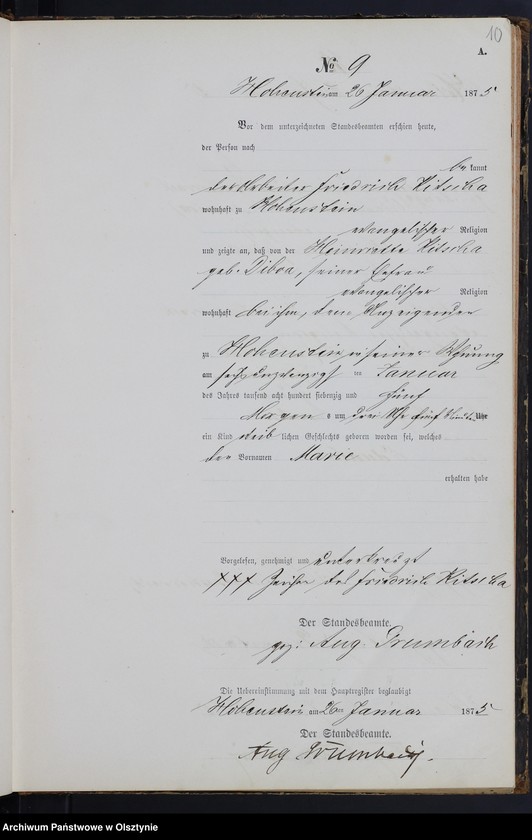 10
A.
No 9
Hohenstein am 26 Januar 1875
Vor dem unterzeichneten Standesbeamten erschien heute,
der Person nach
be kannt
der Arbeiter Friedrich Kitscha
wohnhaft zu Hohenstein
evangelischer Religion
und zeigte an, daß von der Henriette Kitscha
geb. Diboa, seiner Ehefrau
evangelischer Religion
wohnhaft bei ihm, dem Anzeigenden
zu Hohenstein in seiner Wohnung
am sechsundzwanzigsten Januar
des Jahres tausend acht hundert siebenzig und fünf
Morgens um drei Uhr fünf Uhr
ein Kind weib lichen Geschlechts geboren worden sei, welches
den Vornamen Marie
erhalten habe
Vorgelesen, genehmigt und unterkreuzt
XXX Zeichen des Friedrich Kitscha
Der Standesbeamte.
gez: Aug Grumbach
Die Uebereinstimmung mit dem Hauptregister beglaubigt
Hohenstein am 26ten Januar 1875
Der Standesbeamte.
Aug Grumbach.
Archiwum Państwowe w Olsztynie